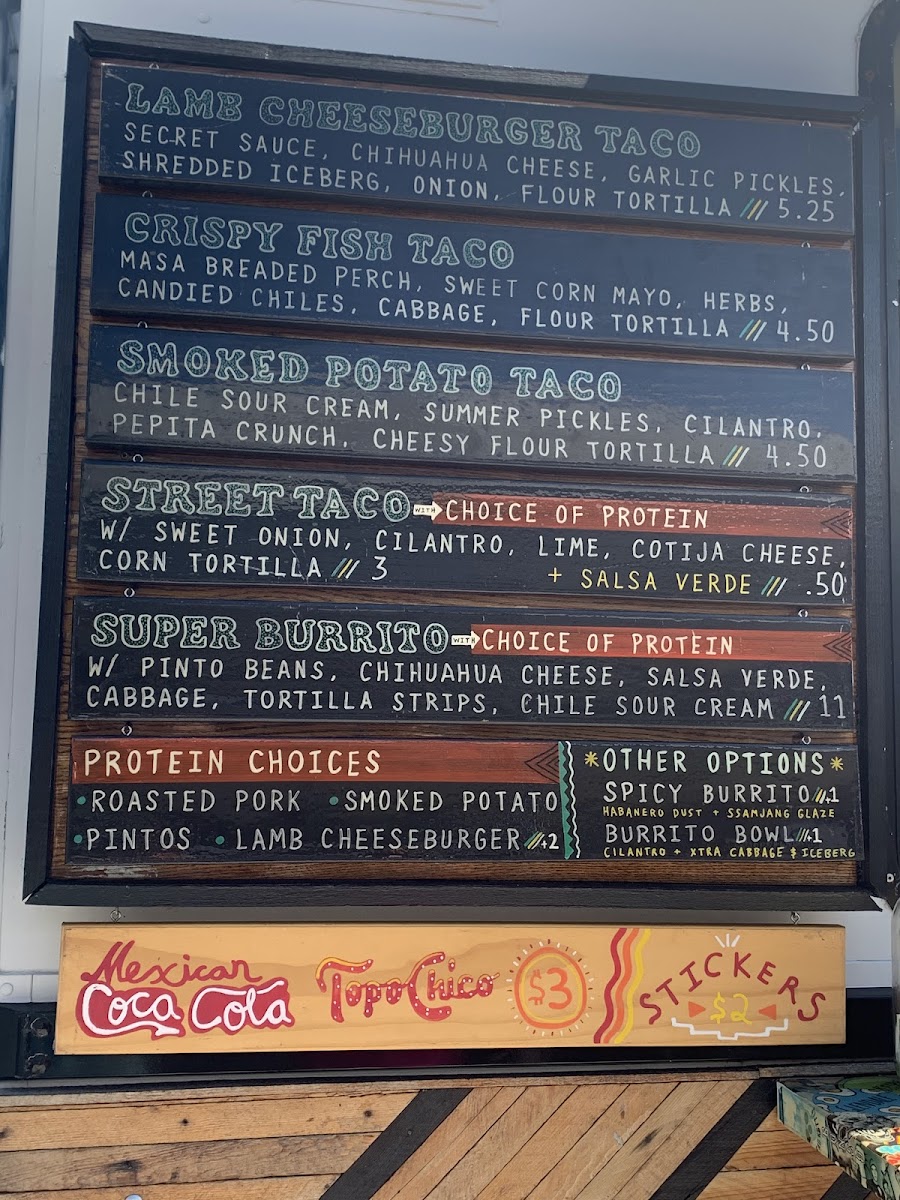 LAMB CHEESEBURGER TACO
SECRET SAUCE, CHIHUAHUA CHEESE, GARLIC PICKLES,
SHREDDED ICEBERG, ONION, FLOUR TORTILLA /// 5.25
CRISPY FISH TACO
MASA BREADED PERCH, SWEET CORN MAYO, HERBS,
CANDIED CHILES, CABBAGE, FLOUR TORTILLA /// 4.50
SMOKED POTATO TACO
CHILE SOUR CREAM, SUMMER PICKLES, CILANTRO,
PEPITA CRUNCH, CHEESY FLOUR TORTILLA /// 4.50
STREET TACO WITH CHOICE OF PROTEIN
W/ SWEET ONION, CILANTRO, LIME, COTIJA CHEESE,
CORN TORTILLA /// 3
+ SALSA VERDE /// .50
SUPER BURRITO WITH CHOICE OF PROTEIN
W/ PINTO BEANS, CHIHUAHUA CHEESE, SALSA VERDE,
CABBAGE, TORTILLA STRIPS, CHILE SOUR CREAM /// 11
PROTEIN CHOICES
•ROASTED PORK •SMOKED POTATO
•PINTOS •LAMB CHEESEBURGER /// +2
*OTHER OPTIONS*
SPICY BURRITO /// +1
HABANERO DUST + SSAMJANG GLAZE
BURRITO BOWL /// +1
CILANTRO + XTRA CABBAGE & ICEBERG
Mexican
Coca Cola
Topo Chico
$3
STICKERS
$2